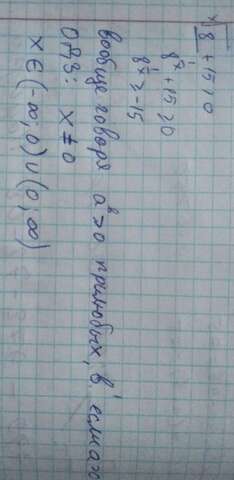 ˣ√8 + 15 > 0
8^(1/x) + 15 ≥ 0
8^(1/x) ≥ -15
вообще говоря aᵇ>0 при любых, b, если a>0
ОДЗ: x ≠ 0
x ∈ (-∞; 0) ∪ (0; ∞)